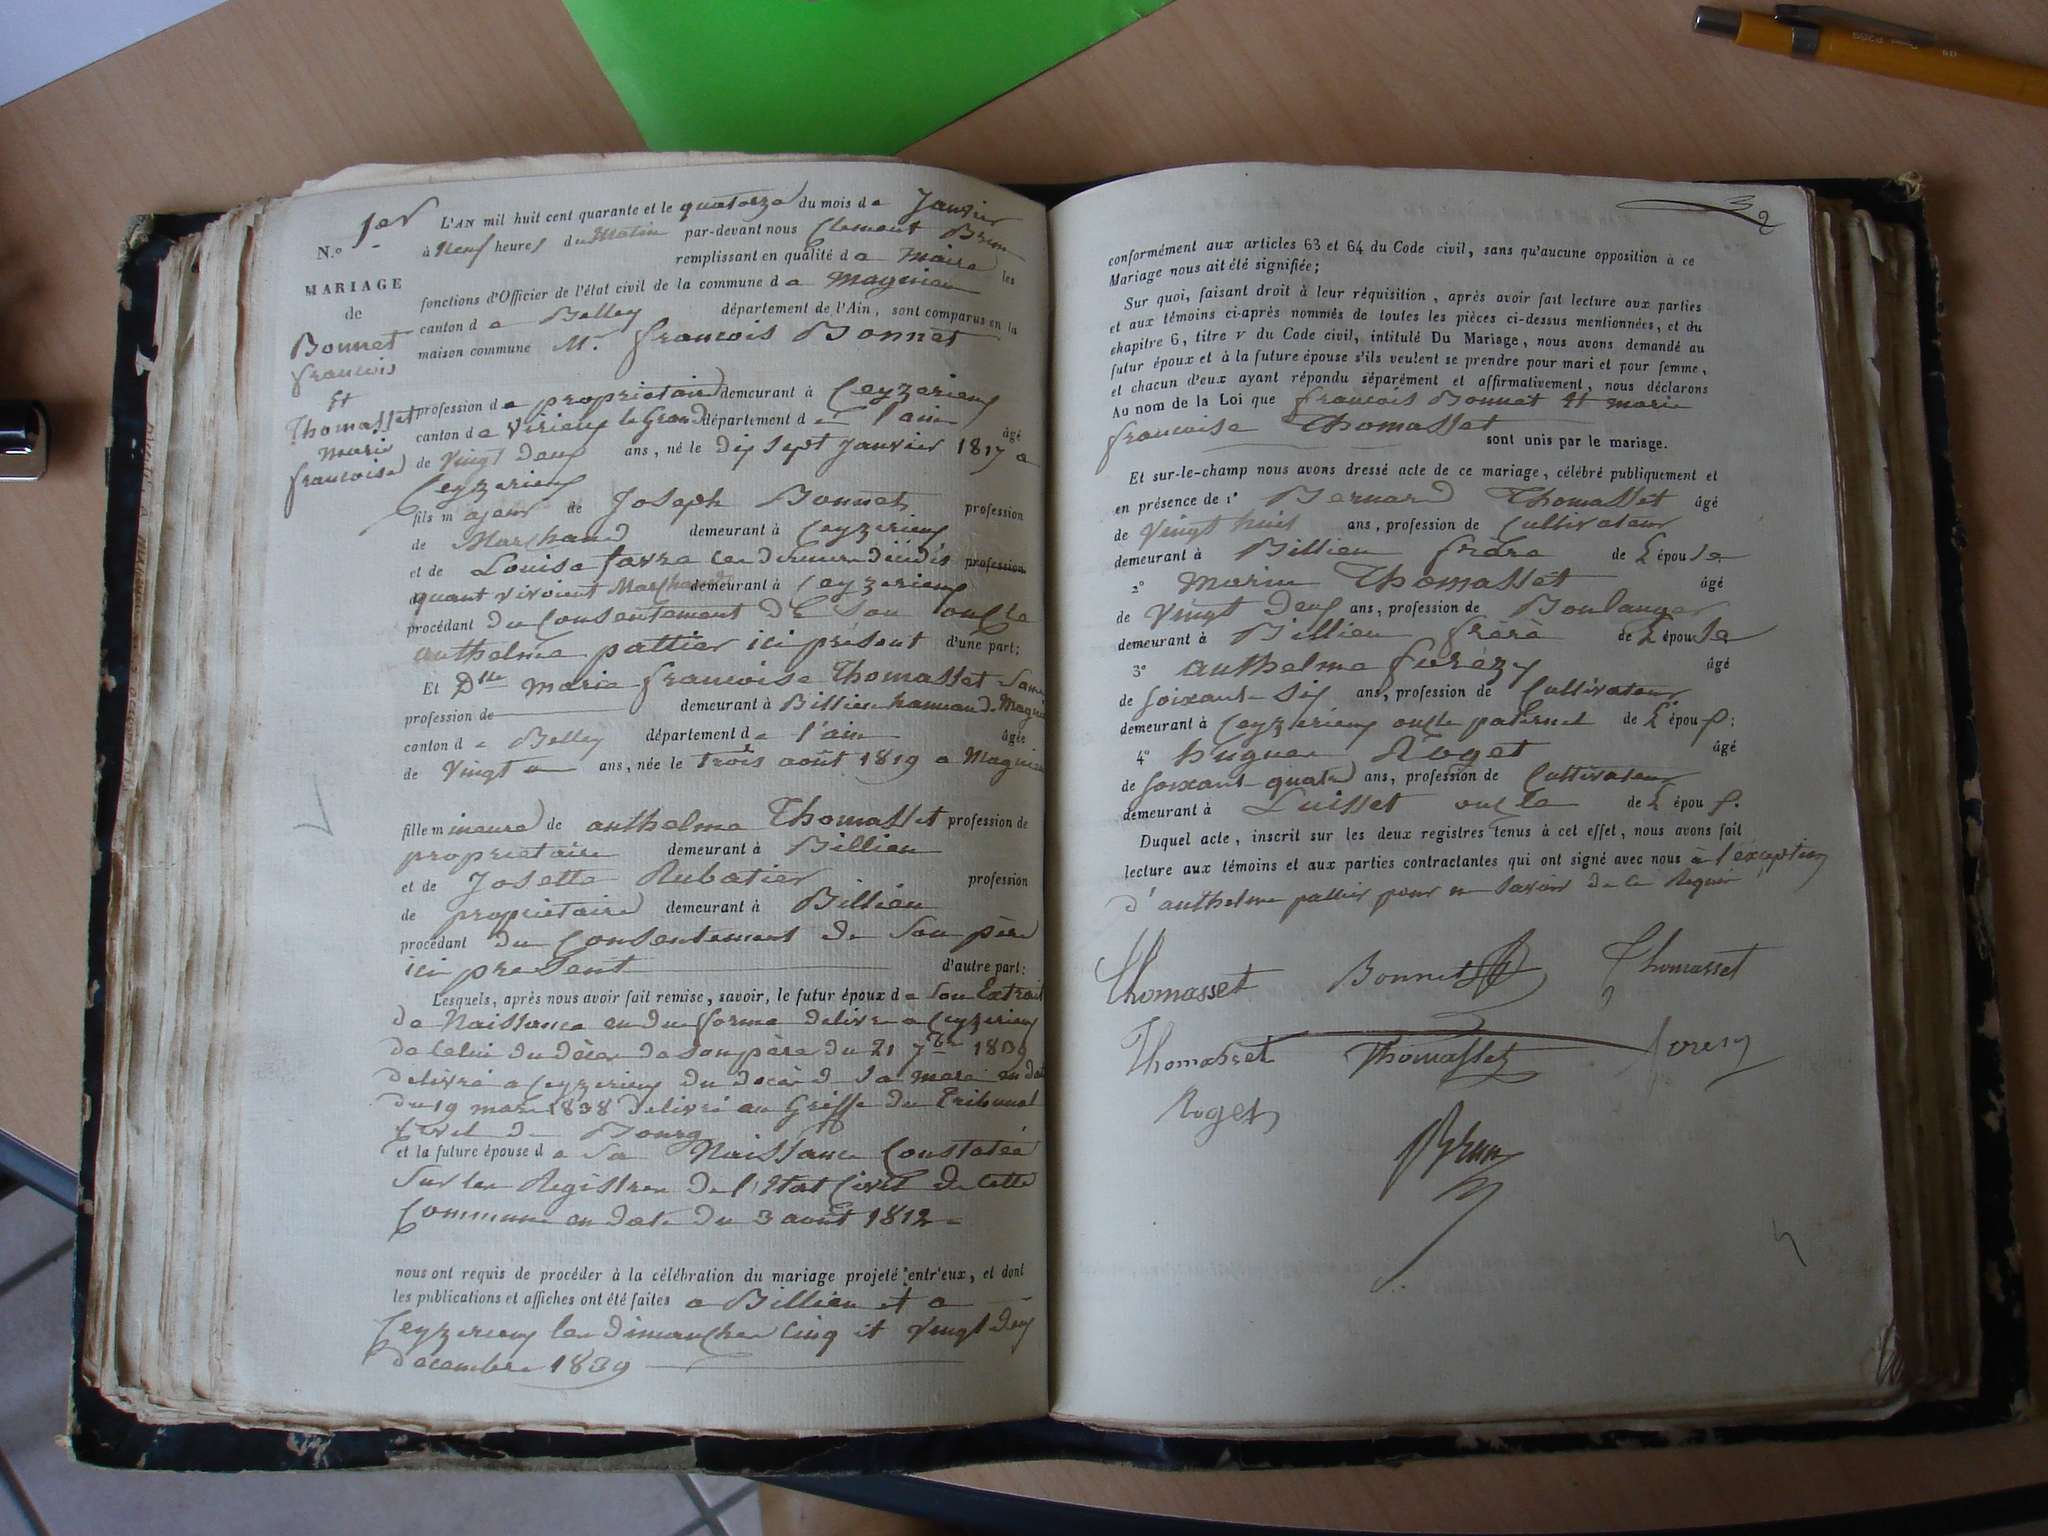 N.º 1er
MARIAGE
de
Bonnet
francois
Et
Thomasset
marie
francoise
L'AN mil huit cent quarante et le quatorze du mois de Janvier
à neuf heures du matin par-devant nous Clement Brun
remplissant en qualité de maire les
fonctions d'Officier de l'état civil de la commune de Magnieu
canton de Belley département de l'Ain, sont comparus en la
maison commune Mr. francois Bonnet
profession de proprietaire demeurant à Ceyzerieux
canton de virieux le Grand département de l'ain âgé
de vingt deux ans, né le dix sept Janvier 1817 a
Ceyzerieux
fils majeur de Joseph Bonnet profession
de Marchand demeurant à Ceyzerieux
et de Louise favre profession
quant vivoient Marchand demeurant à Ceyzerieux
procédant du Consentement de Son oncle
anthelme pattier ici présent d'une part;
Et Dlle marie francoise Thomasset Sans
profession de demeurant à Billieu hameau de Magnieu
canton de Belley département de l'ain âgée
de vingt ans, née le trois août 1819 a Magnieu
fille mineure de anthelme Thomasset profession de
proprietaire demeurant à Billieu
et de Josette Rubatier profession
de propriétaire demeurant à Billieu
procédant du Consentement de Son père
ici present d'autre part:
Lesquels, après nous avoir fait remise, savoir, le futur époux de Son Extrait
de Naissance en due forme delivré a Ceyzerieux
de Celui du décès de Son père du 21 7bre 1839
délivré a Ceyzerieux du décès de Sa mere en date
du 19 mars 1838 delivré au Greffe du Tribunal
Civil de Bourg
et la future épouse de Sa Naissance Constatée
Sur les Registres de l'Etat Civil de Cette
Commune en date du 3 août 1819
nous ont requis de procéder à la célébration du mariage projeté entr'eux, et dont
les publications et affiches ont été faites a Billieu et a
Ceyzerieux les dimanches Cinq et vingt deux
decembre 1839
2
conformément aux articles 63 et 64 du Code civil, sans qu'aucune opposition à ce
Mariage nous ait été signifiée;
Sur quoi, faisant droit à leur réquisition, après avoir fait lecture aux parties
et aux témoins ci-après nommés de toutes les pièces ci-dessus mentionnées, et du
chapitre 6, titre v du Code civil, intitulé Du Mariage, nous avons demandé au
futur époux et à la future épouse s'ils veulent se prendre pour mari et pour femme,
et chacun d'eux ayant répondu séparément et affirmativement, nous déclarons
Au nom de la Loi que francois Bonnet Et marie
francoise Thomasset sont unis par le mariage.
Et sur-le-champ nous avons dressé acte de ce mariage, célébré publiquement et
en présence de 1º Bernard Thomasset âgé
de vingt huit ans, profession de Cultivateur
demeurant à Billieu frère de L'épouse
2º Marin Thomasset âgé
de vingt deux ans, profession de Boulanger
demeurant à Billieu frère de L'épouse
3º anthelme furézy âgé
de Soixante Six ans, profession de Cultivateur
demeurant à Ceyzerieux oncle paternel de L'épou x:
4º hugues Roget âgé
de Soixante quatre ans, profession de Cultivateur
demeurant à Luisset oncle de L'épou x.
Duquel acte, inscrit sur les deux registres tenus à cet effet, nous avons fait
lecture aux témoins et aux parties contractantes qui ont signé avec nous à l'exception
d'anthelme pattier pour ne Savoir de ce Requis
Thomasset Bonnet Thomasset
Thomasset Thomasset
Roget
Brun